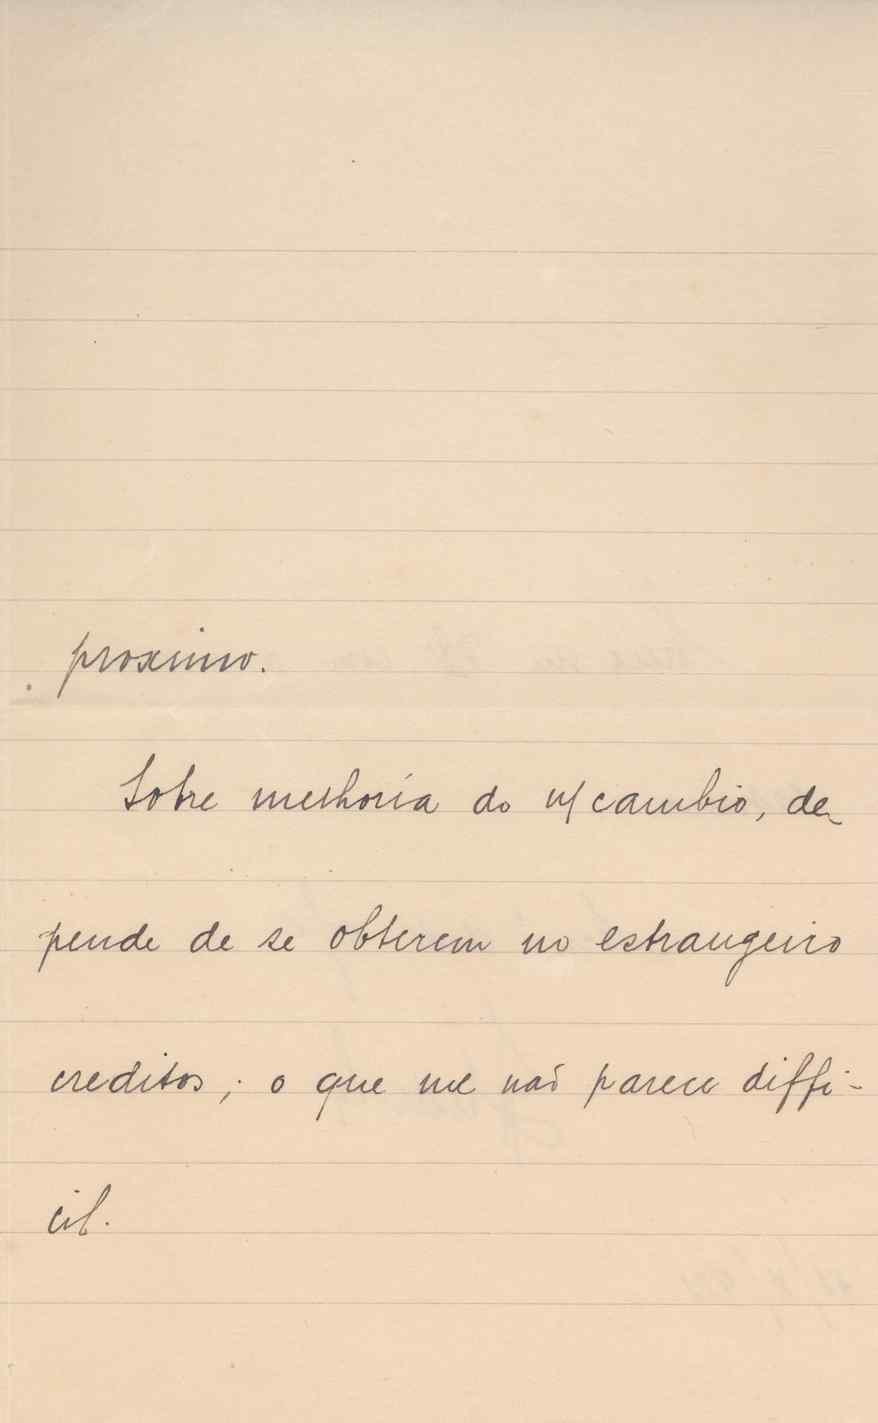 proximo.
Sobre melhoria do n/ cambio, de
pende de se obterem no estrangeiro
creditos; o que me não parece diffi-
cil.